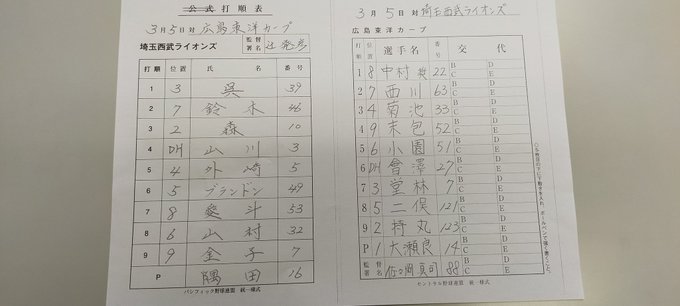 公式打順表
3月5日対 広島東洋カープ
埼玉西武ライオンズ 監督署名 辻発彦
打順 位置 氏名 番号
1 3 呉 39
2 7 鈴木 46
3 2 森 10
4 DH 山川 3
5 4 外崎 5
6 5 ブランドン 49
7 8 愛斗 53
8 6 山村 32
9 9 金子 7
P 隅田 16
パシフィック野球連盟 統一様式
3月5日対 埼玉西武ライオンズ
広島東洋カープ
打順 位置 選手名 番号 交代
1 8 中村奨 22 B C D E
2 7 西川 63 B C D E
3 4 菊池 33 B C D E
4 9 末包 52 B C D E
5 6 小園 51 B C D E
6 DH 會澤 27 B C D E
7 3 堂林 7 B C D E
8 5 二俣 121 B C D E
9 2 持丸 123 B C D E
P 1 大瀬良 14 B C D E
監督署名 佐々岡真司 88 B C D E
セントラル野球連盟 統一様式